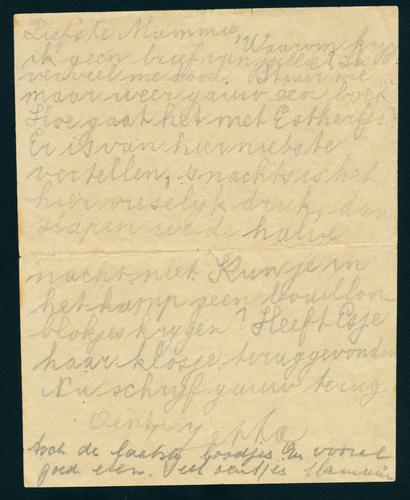 Liefste Mammie,
Waarom krijg
ik geen brief van jullie? Ik
verveel me dood. Stuur me
maar weer gauw een boek.
Hoe gaat het met Esthertje?
Er is van hier niets te
vertellen, s'nachts is het
hier vreselijk druk, dan
slapen we de halve
nacht niet. Kun je in
het kamp geen bouillon
blokjes krijgen? Heeft Esje
haar klosje teruggevonden
Nu schrijf gauw terug
toch de laatste broodjes. En vooral
goed eten.